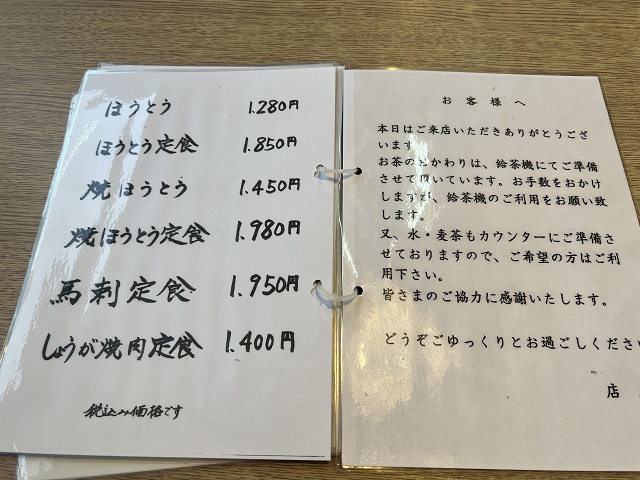 ほうとう 1.280円
ほうとう定食 1.850円
焼ほうとう 1.450円
焼ほうとう定食 1.980円
馬刺定食 1.950円
しょうが焼肉定食 1.400円
税込み価格です
お客様へ
本日はご来店いただきありがとうござ
います。
お茶のおかわりは、給茶機にてご準備
させて頂いています。お手数をおかけ
しますが、給茶機のご利用をお願い致
します。
又、水・麦茶もカウンターにご準備さ
せておりますので、ご希望の方はご利
用下さい。
皆さまのご協力に感謝いたします。
どうぞごゆっくりとお過ごしください
店